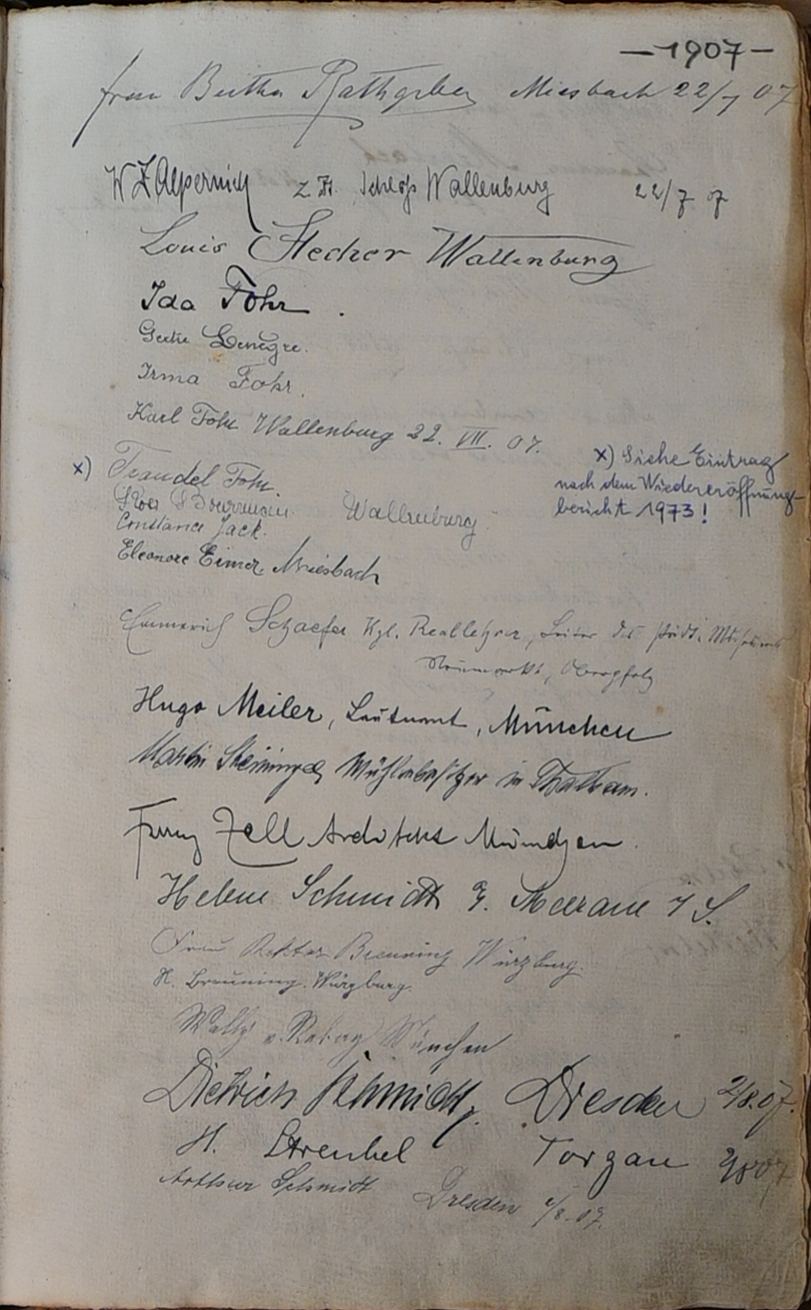 -1907-
Frau Bertha Rathgeber Miesbach 22/7 07
W Z. Z. Schloß Wallenburg 22/7 07
Louis Stecher Wallenburg
Ida Fohr.
Irma Fohr.
Karl Fohr Wallenburg 22. VII. 07.
x) Traudel Fohr.
x) Siehe Eintrag
nach dem Wiedereröffnung-
bericht 1973!
Wallenburg
Constance Jack.
Eleonore Eimer, Miesbach
Emmerich Schaefer Kgl. Reallehrer, Leiter des städt. Museums
Neumarkt, Oberpfalz
Hugo Meiler, Leutnant, München
Martin Steininger, Mühlbesitzer in Thalham.
Franz Zell Architekt München.
Helene Schmidt Meerane i S.
Frau Rektor Breuning Würzburg.
H. Breuning. Würzburg.
München
Dietrich Schmidt, Dresden 2/8.07.
H. Strenbel Torgau 2/8 07
Arthur Schmidt Dresden 2/8.07.